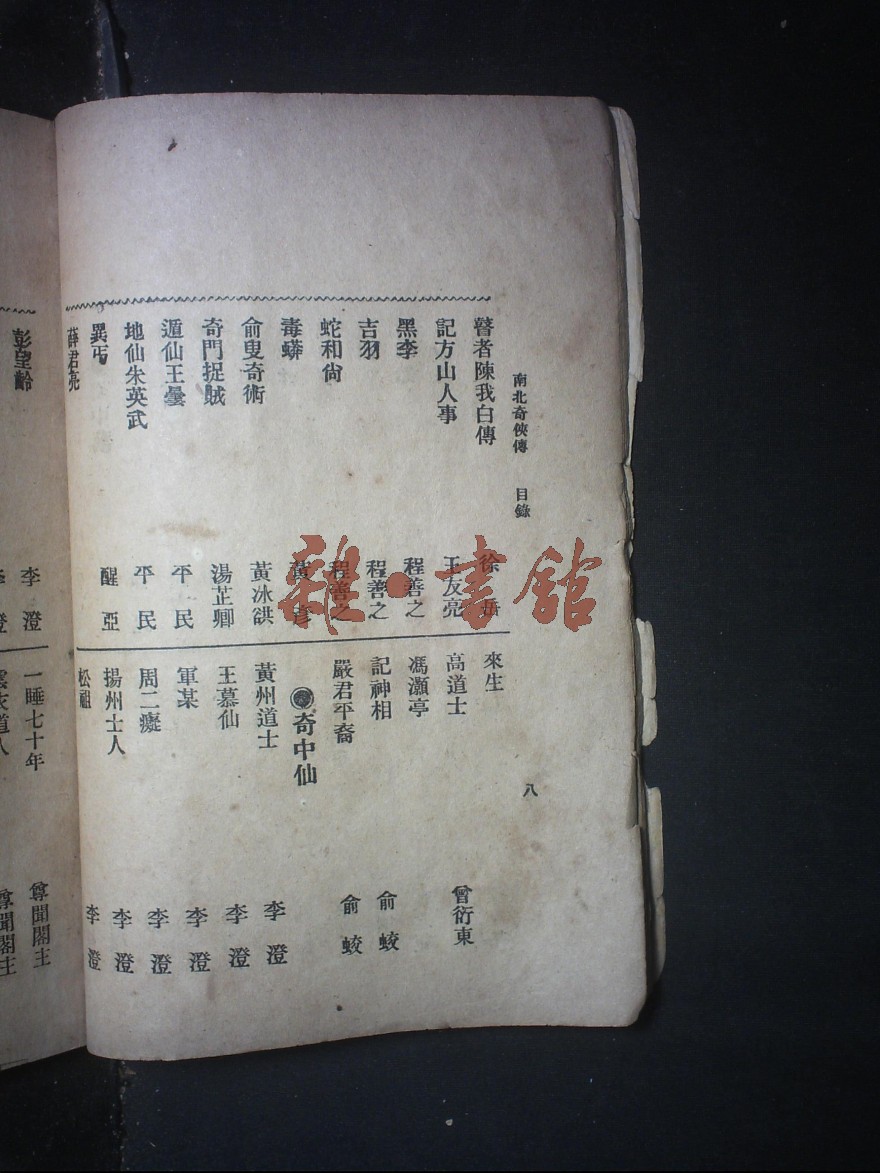 南北奇俠傳 目錄 八
瞽者陳我白傳 徐
記方山人事 王友亮
黑李 程善之
吉羽 程善之
蛇和尚 程善之
毒蟒 黃
俞叟奇術 黃冰鉷
奇門捉賊 湯芷卿
遁仙王曇 平民
地仙朱英武 平民
異丐 醒亞
薛君亮
來生
高道士 曾衍東
馮灝亭
記神相 俞蛟
嚴君平裔 俞蛟
奇中仙
黃州道士 李澄
王慕仙 李澄
軍某 李澄
周二癡 李澄
揚州士人 李澄
松祖 李澄
彭望齡 李澄
一睡七十年 尊聞閣主
尊聞閣主
雜·書館